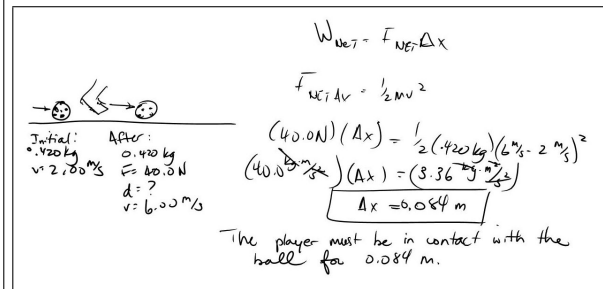 W_NET = F_NET Δx
F_NET Δx = 1/2 mv²
Initial: After:
0.420 kg 0.420 kg
v = 2.00 m/s F = 40.0N
d = ?
v = 6.00 m/s
(40.0N)(Δx) = 1/2 (.420 kg)(6 m/s - 2 m/s)²
(40.0 kg·m/s²)(Δx) = (3.36 kg·m²/s²)
Δx = 0.084 m
The player must be in contact with the
ball for 0.084 m.